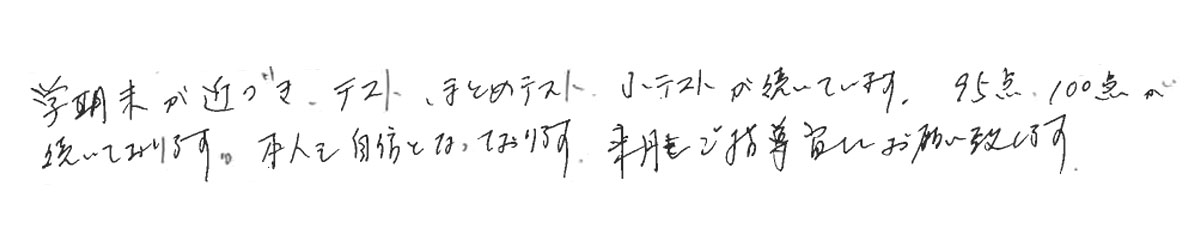 学期末が近づき、テスト、まとめテスト、小テストが続いています。95点、100点が
続いております。本人も自信となっております。来月もご指導宜しくお願い致します。